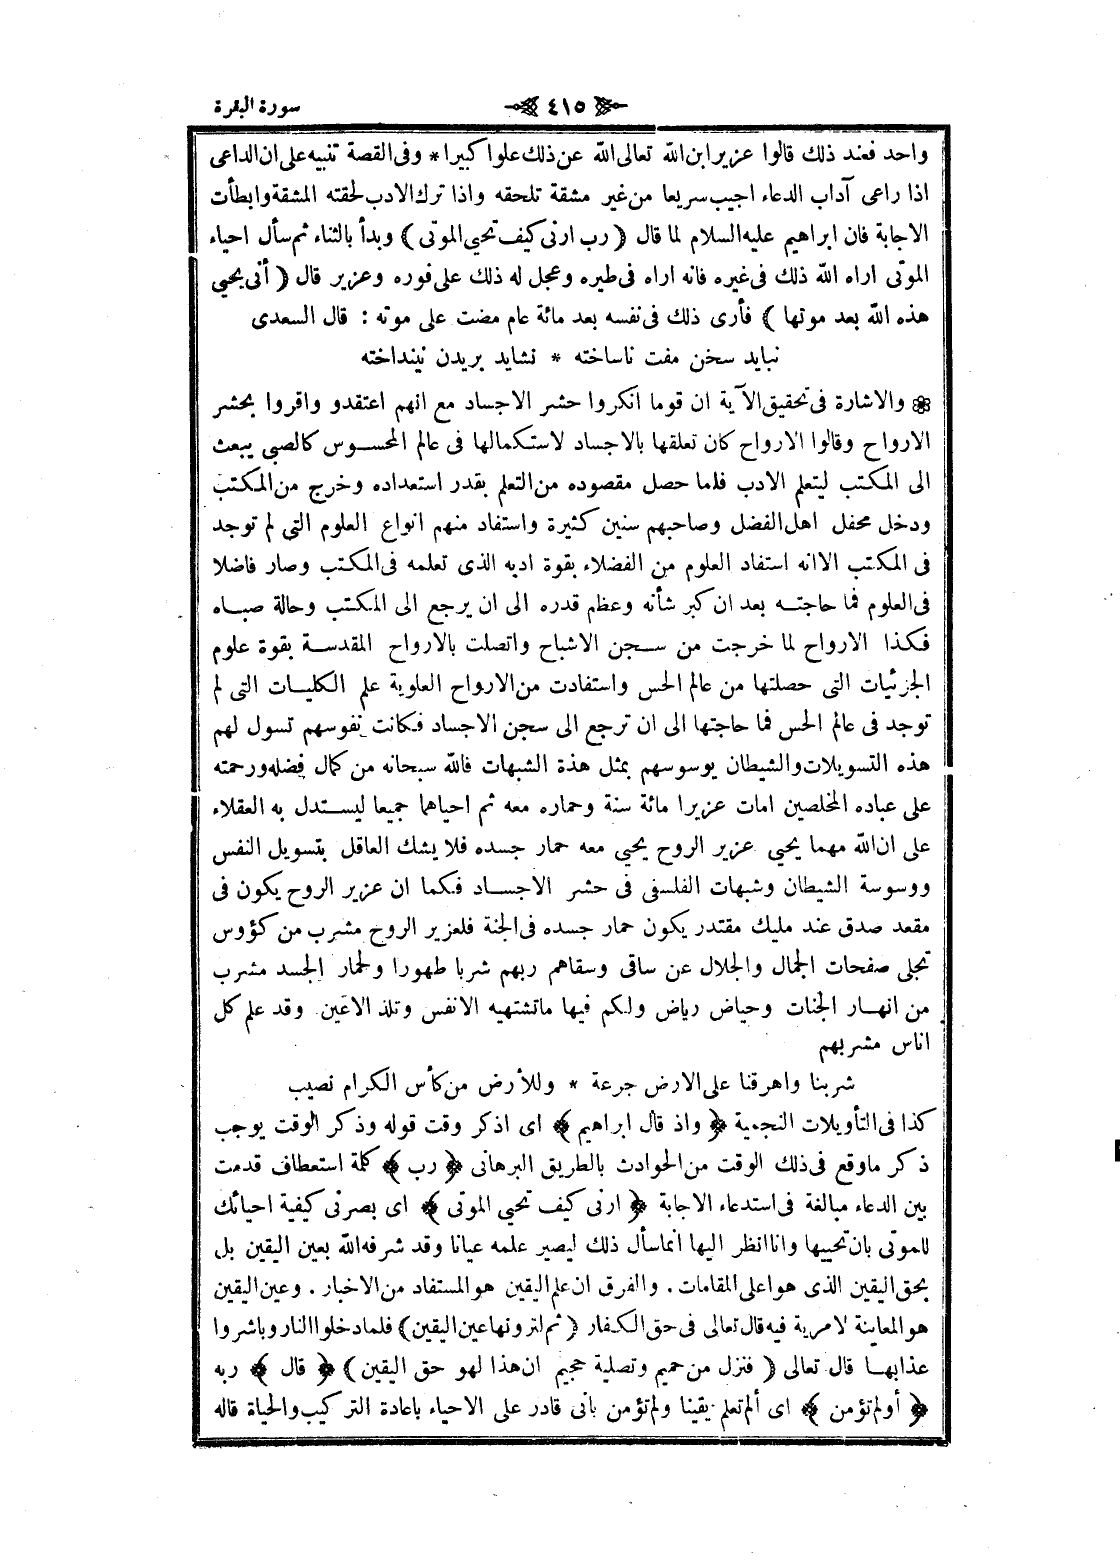 سورة البقرة ٤١٥
واحد فعند ذلك قالوا عزير ابن الله تعالى الله عن ذلك علوا كبيرا * وفى القصة تنبيه على ان الداعى
اذا راعى آداب الدعاء اجيب سريعا من غير مشقة تلحقه واذا ترك الادب لحقته المشقة وابطأت
الاجابة فان ابراهيم عليه السلام لما قال ( رب ارنى كيف تحيي الموتى ) وبدأ بالثناء ثم سأل احياء
الموتى اراه الله ذلك فى غيره فانه اراه فى طيره وعجل له ذلك على فوره وعزير قال ( أنى يحيي
هذه الله بعد موتها ) فأرى ذلك فى نفسه بعد مائة عام مضت على موته : قال السعدى
نبايد سخن مفت ناساخته * نشايد بريدن نينداخته
❁ والاشارة فى تحقيق الآية ان قوما انكروا حشر الاجساد مع انهم اعتقدو واقروا بحشر
الارواح وقالوا الارواح كان تعلقها بالاجساد لاستكمالها فى عالم المحسوس كالصبى يبعث
الى المكتب ليتعلم الادب فلما حصل مقصوده من التعلم بقدر استعداده وخرج من المكتب
ودخل محفل اهل الفضل وصاحبهم سنين كثيرة واستفاد منهم انواع العلوم التى لم توجد
فى المكتب الا انه استفاد العلوم من الفضلاء بقوة ادبه الذى تعلمه فى المكتب وصار فاضلا
فى العلوم فما حاجته بعد ان كبر شأنه وعظم قدره الى ان يرجع الى المكتب وحالة صباه
فكذا الارواح لما خرجت من سجن الاشباح واتصلت بالارواح المقدسة بقوة علوم
الجزئيات التى حصلتها من عالم الحس واستفادت من الارواح العلوية علم الكليات التى لم
توجد فى عالم الحس فما حاجتها الى ان ترجع الى سجن الاجساد فكانت نفوسهم تسول لهم
هذه التسويلات والشيطان يوسوسهم بمثل هذة الشبهات فالله سبحانه من كمال فضله ورحمته
على عباده المخلصين امات عزيرا مائة سنة وحماره معه ثم احياهما جميعا ليستدل به العقلاء
على ان الله مهما يحيي عزير الروح يحيي معه حمار جسده فلا يشك العاقل بتسويل النفس
ووسوسة الشيطان وشبهات الفلسفى فى حشر الاجساد فكما ان عزير الروح يكون فى
مقعد صدق عند مليك مقتدر يكون حمار جسده فى الجنة فلعزير الروح مشرب من كؤوس
تجلى صفحات الجمال والجلال عن ساقى وسقاهم ربهم شربا طهورا ولحمار الجسد مشرب
من انهار الجنات وحياض رياض ولكم فيها ماتشتهيه الانفس وتلذ الاعين وقد علم كل
اناس مشربهم
شربنا واهرقنا على الارض جرعة * وللأرض من كأس الكرام نصيب
كذا فى التأويلات النجمية ﴿ واذ قال ابراهيم ﴾ اى اذكر وقت قوله وذكر الوقت يوجب
ذكر ماوقع فى ذلك الوقت من الحوادث بالطريق البرهانى ﴿ رب ﴾ كلمة استعطاف قدمت
بين الدعاء مبالغة فى استدعاء الاجابة ﴿ ارنى كيف تحيي الموتى ﴾ اى بصرنى كيفية احيائك
للموتى بان تحييها وانا انظر اليها انما سأل ذلك ليصير علمه عيانا وقد شرفه الله بعين اليقين بل
بحق اليقين الذى هو اعلى المقامات . والفرق ان علم اليقين هو المستفاد من الاخبار . وعين اليقين
هو المعاينة لا مرية فيه قال تعالى فى حق الكفار ( ثم لترونها عين اليقين ) فلما دخلوا النار وباشروا
عذابها قال تعالى ( فنزل من حميم وتصلية جحيم ان هذا لهو حق اليقين ) ﴿ قال ﴾ ربه
﴿ أولم تؤمن ﴾ اى ألم تعلم يقينا ولم تؤمن بانى قادر على الاحياء باعادة التركيب والحياة قاله